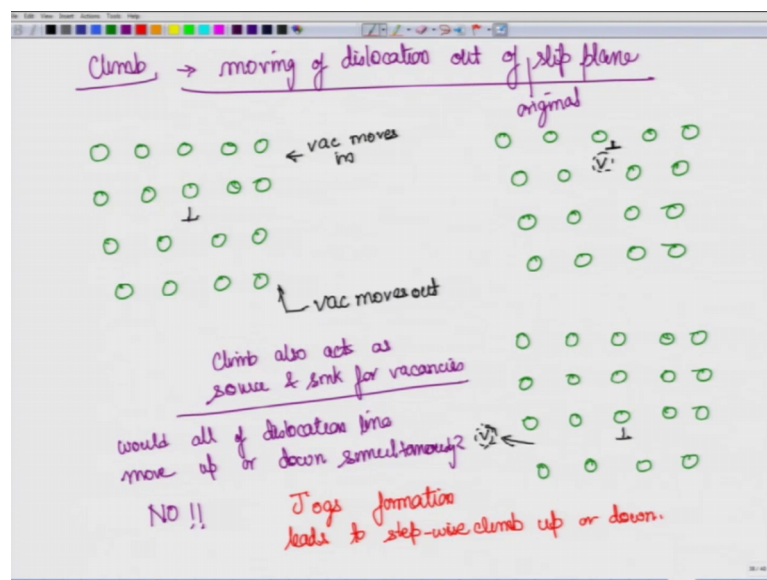 File Edit View Insert Actions Tools Help
Climb → moving of dislocation out of slip plane
original
← vac moves
in
⊥
⊥
V
vac moves out
Climb also acts as
source & sink for vacancies
would all of dislocation line
move up or down simultaneously?
V
⊥
NO!!
Jogs formation
leads to step-wise climb up or down.